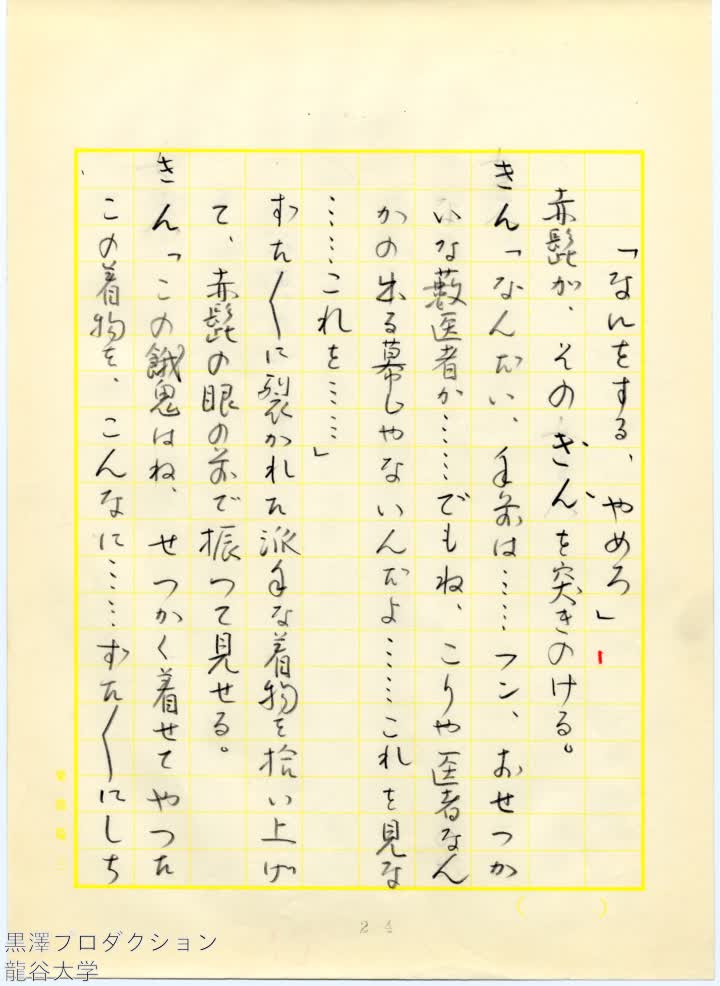 「なにをする、やめろ」
赤髭が、そのきんを突きのける。
きん「なんだい、手前は……フン、おせつか
いな藪医者か……でもね、こりや医者なん
かの出る幕じやないんだよ……これを見な
……これを……」
ずた〱に裂かれた派手な着物を拾い上げ
て、赤髭の眼の前で振つて見せる。
きん「この餓鬼はね、せつかく着せてやつた
この着物を、こんなに……ずた〱にしち
24
黒澤プロダクション
龍谷大学